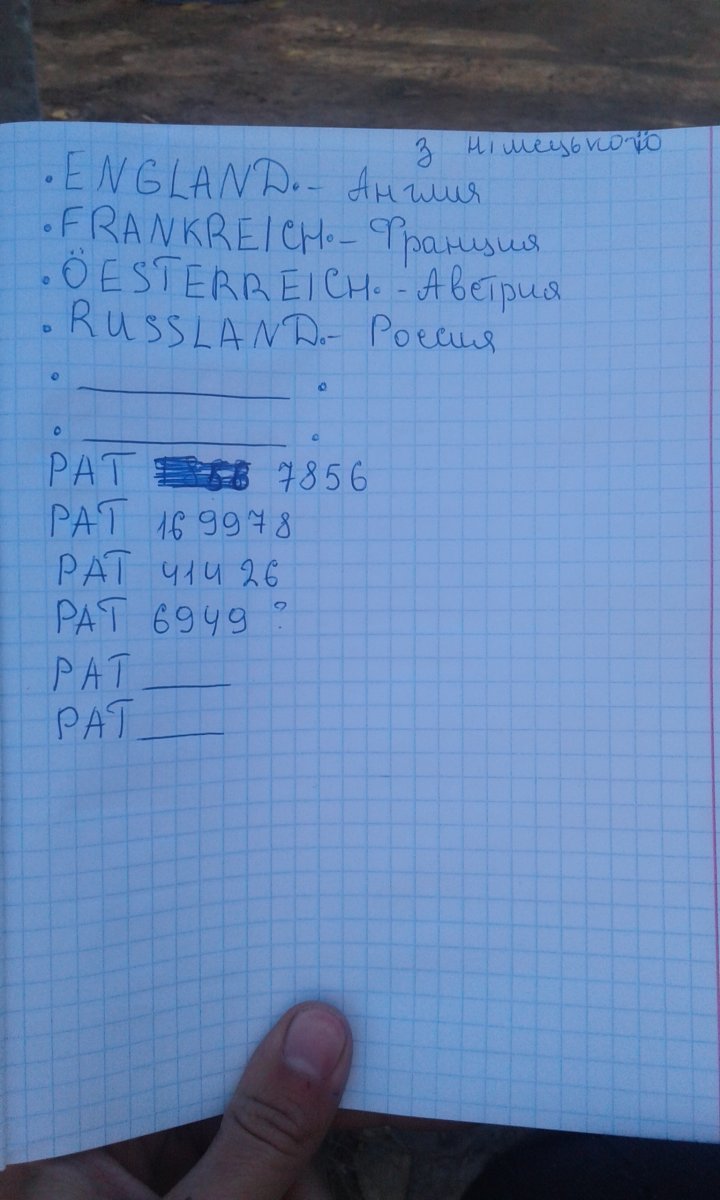 з німецького
• ENGLAND. - Англия
• FRANKREICH. - Франция
• ÖESTERREICH. - Австрия
• RUSSLAND. - Россия
• ________ •
• ________ •
PAT 7856
PAT 169978
PAT 41426
PAT 6949 ?
PAT ____
PAT ____